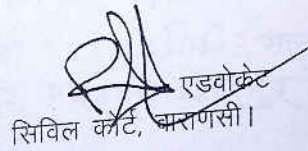 एडवोकेट
सिविल कोर्ट, वाराणसी।